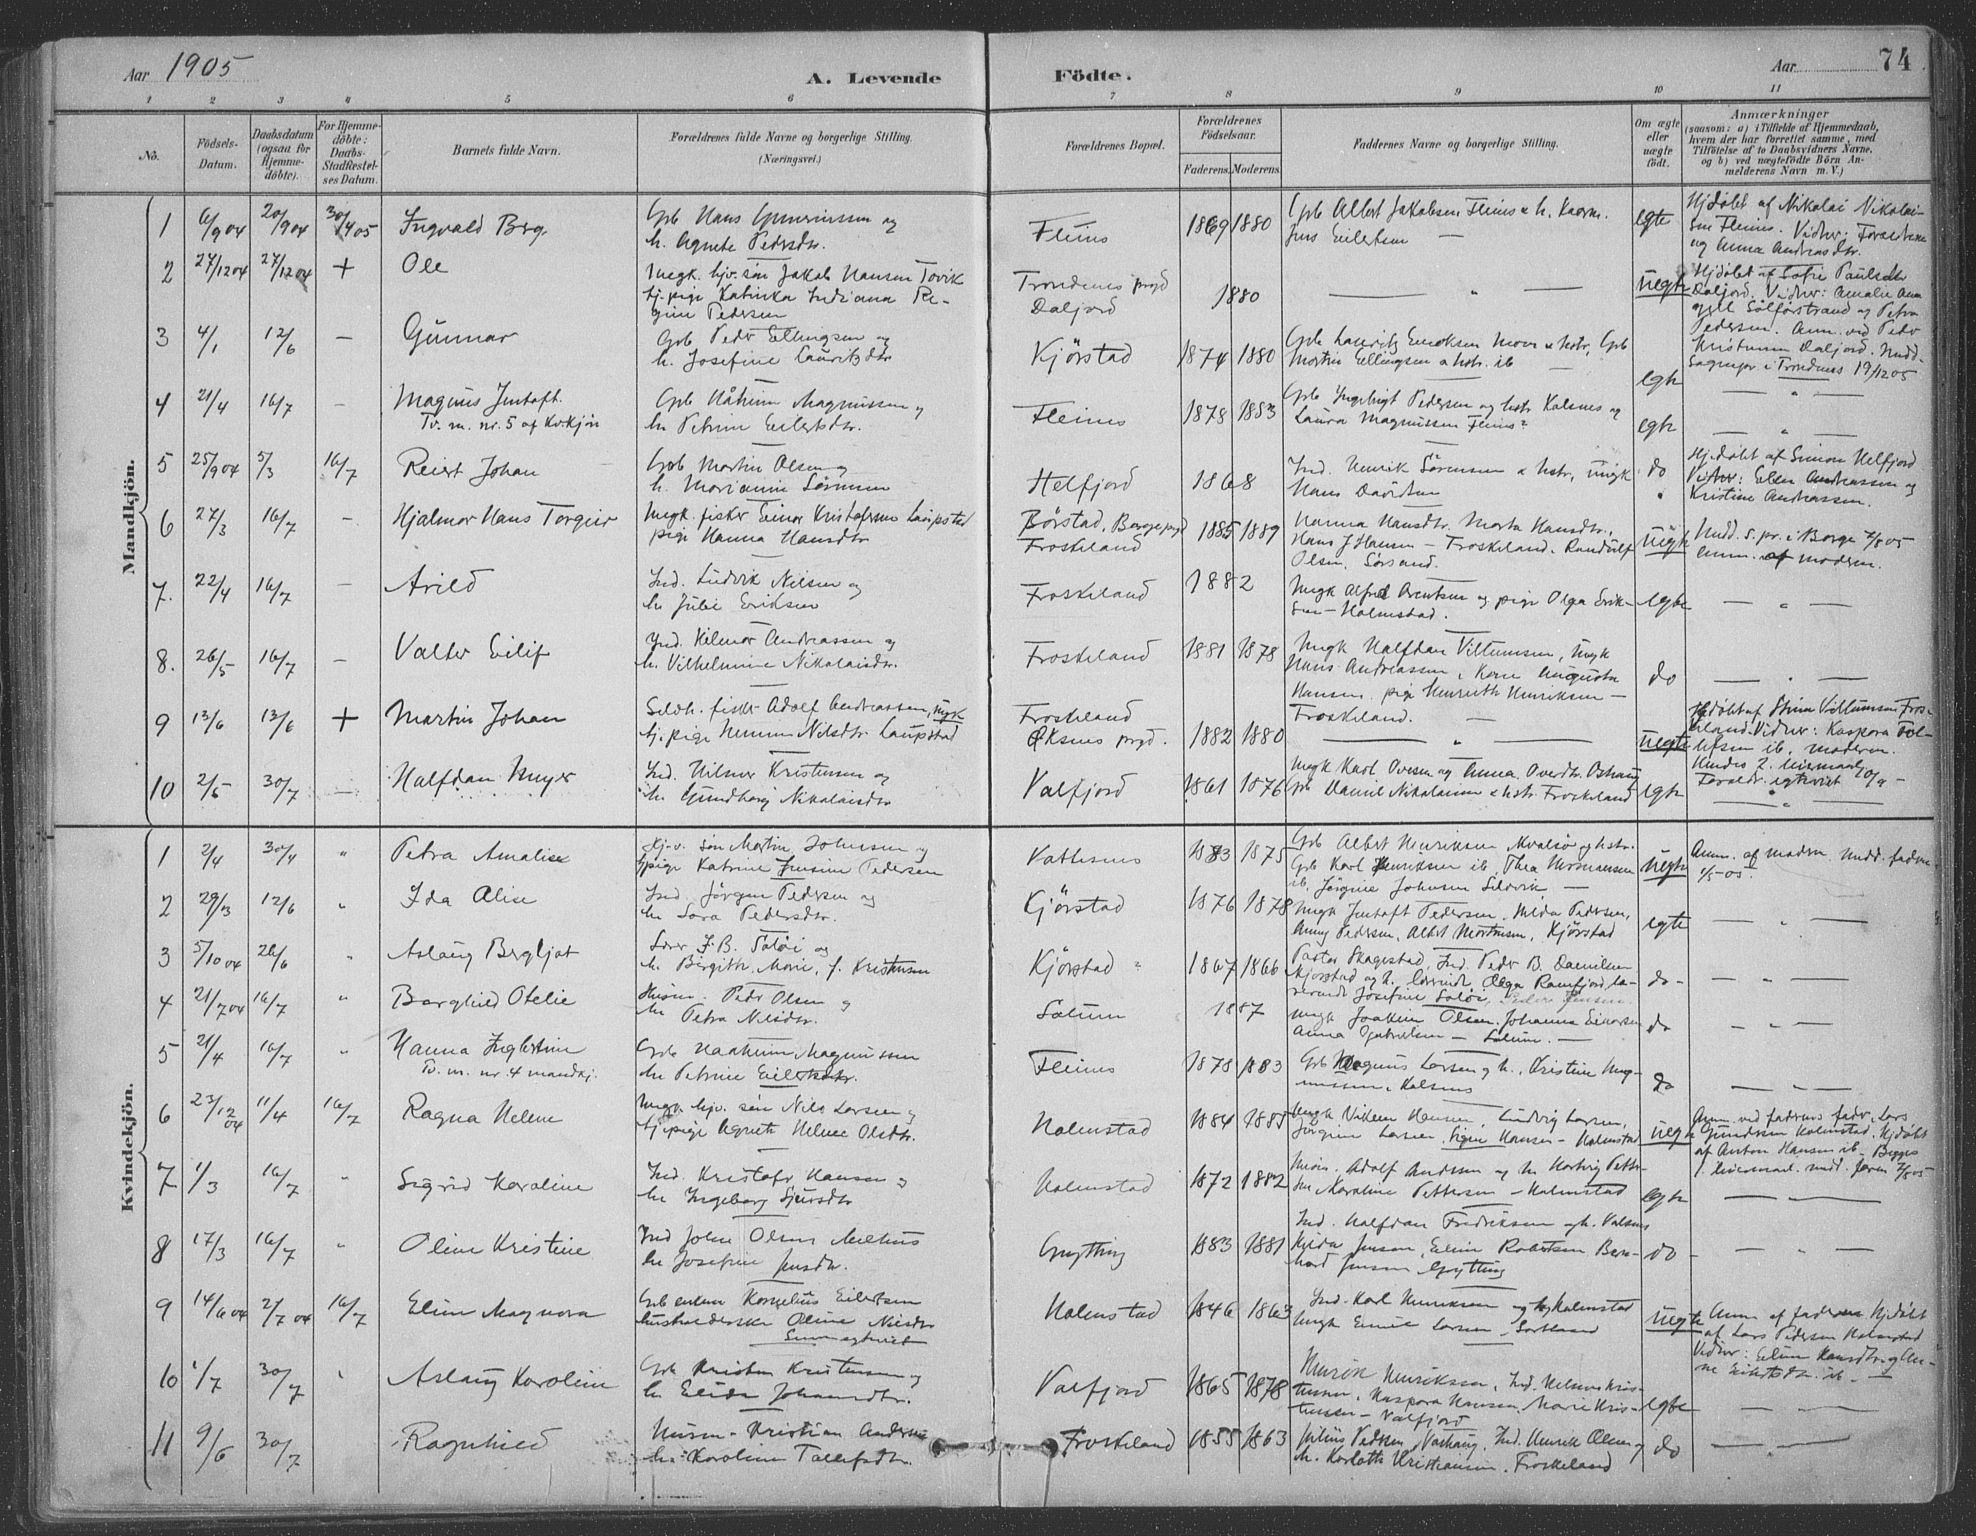 Aar 1905
A. Levende Födte.
Aar 74
1 2 3 4 5 6 7 8 9 10 11
No.
Födsels-Datum.
Daabsdatum (ogsaa for Hjemme-döbte).
For Hjemme-döbte: Daabs-Stadfæstel-ses Datum.
Barnets fulde Navn.
Forældrenes fulde Navne og borgerlige Stilling. (Næringsvei.)
Forældrenes Bopæl.
Forældrenes Födselsaar.
Faderens. Moderens.
Faddernes Navne og borgerlige Stilling.
Om ægte eller uægte födt.
Anmærkninger
(saasom: a) i Tilfælde af Hjemmedaab, hvem der har forrettet samme, med Tilföielse af to Daabsvidners Navne, og b) ved uægtefödte Börn An-melderens Navn m. V.)
Mandkjön.
1 6/9 04 20/9 04 30/4 05 Ingvald Berg
h. Agnete Pedersdtr.
Fleines 1869 1880
Gbr Albert Jakobsen Fleines & h.
Jens Eilertsen —
egte
Hjdøbt af Nikolai Nikolai-
sen Fleines. Vidner: Forældrene
og Anna Andreasdtr.
2 27/12 04 27/12 04 + Ole
ungk. hjv. søn Jakob Hansen Tovik
tj. pige Katinka Indiana Re-
gine Pedersen
Trondenes prgd
Daljord
1880
— " —
uegte
Hjdøbt af Sofie Paulsdtr
Daljord. Vidner: Amalie
Pedersen. Anm. ved Peder
Kristensen Daljord. Medd.
Sognepr i Trondenes 19/12 05
3 4/1 12/6 — Gunnar
Gbr Peder Ellingsen og
h. Josefine Lauritsdtr
Kjörstad 1874 1880
Martin Ellingsen & hstr. ib —
egte
— " —
4 21/4 16/7 - Magnus Justoft.
Tv. m. nr. 5 af Kv.kjön
Gbr Nahum Magnussen og
h. Petrine Eilertsdtr.
Fleines 1878 1883
Gbr Ingebrigt Pedersen og hstr Kalsnes og
Laura Magnussen Fleines
egte
— " —
5 25/9 04 5/3 16/7 Reiert Johan
Gbr Martin Olsen og
h. Marianne Sörensen
Helfjord 1868
Ind. Henrik Sörensen & hstr, ungk
Hans Davidsen
do
Hjdøbt af Simon Helfjord
Vidner: Ellen Andreassen og
Kristine Andreassen.
6 27/3 16/7 - Hjalmar Hans Torgier
Ungk. fisker Einar Kristofersen Laupstad
pige Hanna Hansdtr
Börstad, Borge prgd
Froskeland
1885 1889
Hanna Hansdtr. Marta Hansdtr.,
Hans J Hansen — Froskeland. Randulf
Olsen, Sörsand.
uegte
Medd. s. pr. i Borge 7/8 05
Anm. af moderen.
7. 22/4 16/7 - Arild
Ind. Ludvik Nilsen og
h. Julie Eriksen
Froskeland 1882
Ungk Alfred Arentsen og pige Olga Erik-
sen — Holmstad.
egte
— " —
8. 26/5 16/7 - Valter Eilif
Ind. Hilmar Andreassen og
h. Vilhelmine Nikolaisdtr.
Froskeland 1881 1878
Ungk Halfdan Villumsen, Ungk
Hans Andreassen, Kone Augusta
Hansen, pige Henriette Henriksen —
Froskeland. —
do
— " —
9 13/6 13/6 + Martin Johan
Selvh. fisker Adolf Andreassen, ungk
tj. pige Nilsdtr. Laupstad
Froskeland
Øksnes prgd.
1882 1880
— " —
uegte
Hjdøbt af Stina Villumsen Fros-
keland. Vidner: Kaspara Tol-
lefsen ib., moderen.
10 2/5 30/7 - Halfdan Meyer
Ind. Hilmar Kristensen og
h. Gundborg Nikolaisdtr
Valfjord 1861 1876
Ungk Karl Ovesen og Anna Ovedtr.
Gbr Daniel Nikolaisen & hstr. Froskeland
egte
— " —
Kvindekjön.
1 2/4 30/4 " Petra Amalie
Hj.v. søn Martin Johnsen og
tj. pige Katrine Jensine Pedersen
1883 1875
Gbr Albert Henriksen og hstr.
Gbr Karl Henriksen ib, Thea
ib, Jörgine Johnsen —
uegte
Anm. af modern. Medd. fadren
1/5 05.
2 29/3 12/6 " Ida Alise
Ind. Jörgen Pedersen og
h. Sara Pedersdtr.
Kjörstad 1876 1878
Ungk Justoft Pedersen, Hilda Pedersen,
Anny Pedersen, Albert Mortensen, Kjörstad
egte
— " —
3 5/10 04 26/6 " Aslaug Bergljot
Lærer J. B. Saløi og
h. Birgitte Marie, f. Kristensen
Kjörstad 1867 1866
Pastor Skagestad, Ind. Peder B. Danielsen
Kjörstad og h. lærerinde Olga Ramfjord, læ-
rerinde Josefine Saløi
do -
— " —
4 21/7 04 16/7 " Borghild Otelie
Husm. Peder Olsen og
h. Petra Nilsdtr.
1887
Ungk Joakim Olsen, Johanna Einarsen
Anna Gabrielsen —
do
— " —
5 21/4 16/7 " Hanna Ingbertine
Tv. m. nr. 4 mandkj.
Gbr Nahum Magnussen
h. Petrine Eilertsdtr.
Fleines 1878 1883
Gbr Magnus Larsen og h., Kristine Mag-
nussen, Kalsnes
do
— " —
6 23/12 04 11/4 16/7 Ragna Helene
Ungk hjv. søn Nils Larsen og
tj. pige Agnete Helene Olsdtr.
Holmstad 1884 1885
Ungk Viken Hansen, Ludvig Larsen,
Jörgine Larsen, Signe Hansen — Holmstad
uegte
Anm. ved fadrens fader, Lars
Gundersen Holmstad. Hjdøbt
af Anton Hansen ib — Begges
1. leiermaal. medd. 7/8 05
7 1/3 16/7 " Sigrid Karoline
Ind. Kristofer Hansen og
h. Ingeborg Sjursdtr
Holmstad 1872 1882
h. Karoline Pettersen — Holmstad
egte
— " —
8 17/3 16/7 " Oline Kristine
Ind John Olsen Melhus
h. Josefine Jensdtr.
Grytting 1883 1881
Ind. Halfdan Fredriksen og h. Valsnes
Hilda Jensen, Eline Robertsen, Bern-
hard Jensen Grytting
do -
— " —
9 14/6 04 2/7 04 16/7 Eline Magnora
Gbr enkem. Kornelius Eilertsen
husholderske Oline Nilsdtr
Holmstad 1846 1863
Ind. Karl Henriksen og h. Holmstad
Ungk Emil Larsen, Sortland
uegte
Anm. af faderen Hjdøbt
af Lars Pedersen Holmstad
Vidner: Eline Hansdtr og An-
10 1/7 30/7 " Aslaug Karoline
Gbr Kristen Kristensen og
h. Elida Johansdtr.
Valfjord 1865 1878
Henrik Henriksen, Ind. Kris-
tensen, Kaspara Hansen, Marie Kris-
tensen — Valfjord
egte
— " —
11 9/6 30/7 Ragnhild
Husm. Kristian Andersen
h. Karoline Tollefsdtr.
Froskeland 1855 1863
Julius Pedersen, Ind. Henrik Olsen og
h. Karlotte Kristiansen, Froskeland
do
— " —